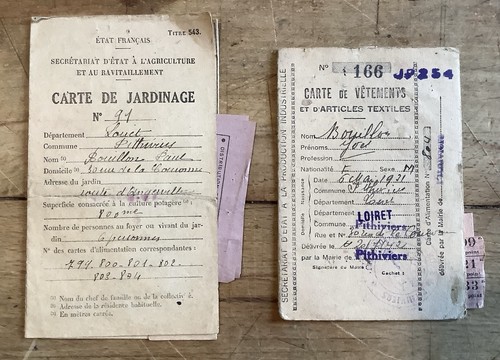 ÉTAT FRANÇAIS
TITRE 543.
SECRÉTARIAT D'ÉTAT À L'AGRICULTURE
ET AU RAVITAILLEMENT
CARTE DE JARDINAGE
N° 91
Département Loiret
Commune Pithiviers
Nom (1) Bouillon Paul
Domicile (2) rue de la Couronne
Adresse du jardin
route d'
Superficie consacrée à la culture potagère (3)
800 m²
Nombre de personnes au foyer ou vivant du jardin
6 personnes
N°s des cartes d'alimentation correspondantes :
799. 800 - 801 - 802 -
803 - 804
(1) Nom du chef de famille ou de la collectivité.
(2) Adresse de la résidence habituelle.
(3) En mètres carrés.
N° 166 J 2254
CARTE DE VÊTEMENTS
ET D'ARTICLES TEXTILES
SECRÉTARIAT D'ÉTAT A LA PRODUCTION INDUSTRIELLE
Nom Bouillon
Prénoms
Profession
Nationalité F Sexe M
Date 6 Mai 1921
Commune Pithiviers
Département Loiret
Département LOIRET
Commune Pithiviers
Rue et N° 30 rue de la Cour
Délivrée le 20/7/42
Mairie de Pithiviers
Signature du Maire : Cachet :
Carte d'Alimentation N° 804
délivrée par la Mairie de Pithiviers